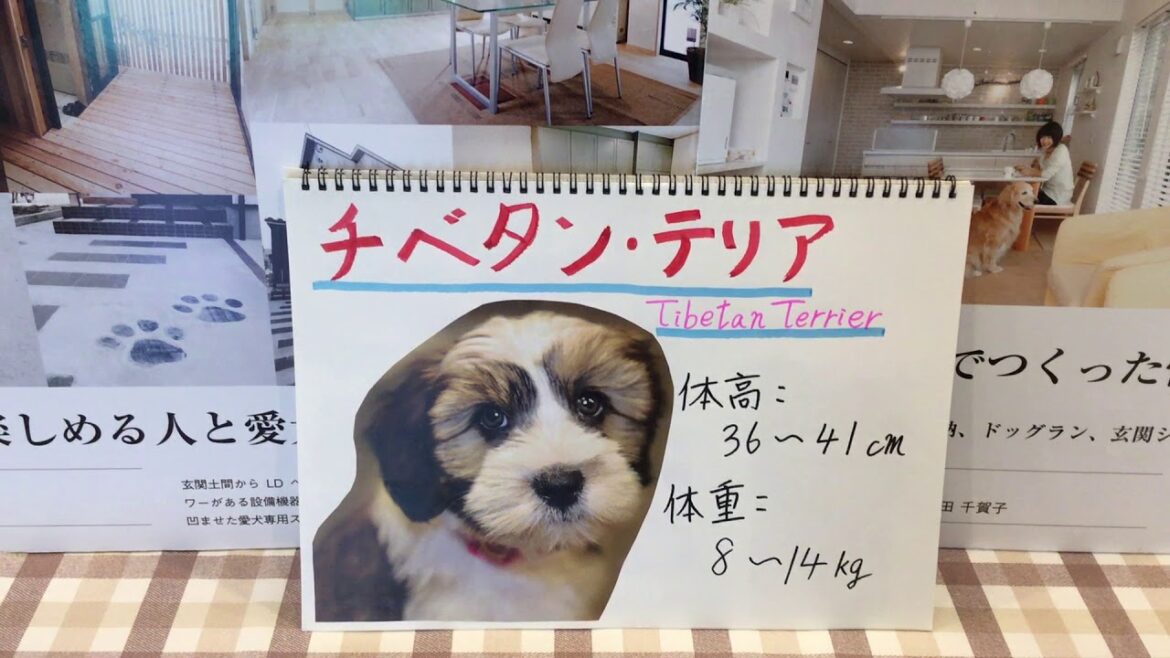 チベタン・テリア
Tibetan Terrier
体高:
36〜41cm
体重:
8〜14kg
しめる人と愛
玄関土間から LD
ワーがある設備機器
凹ませた愛犬専用ス
でつくった
、ドッグラン、玄関シ
田 千賀子